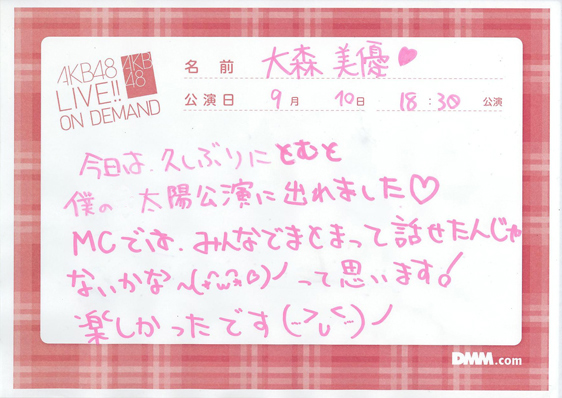 AKB48
LIVE!!
ON DEMAND
AKB
48
名前 大森美優♡
公演日 9月 10日 18:30 公演
今日は、久しぶりにともと
僕の 太陽公演に出れました♡
MCでは、みんなでまとまって話せたんじゃ
ないかな〜(*^ω^*)ノ って思います!
楽しかったです(->∪<-)ノ
DMM.com